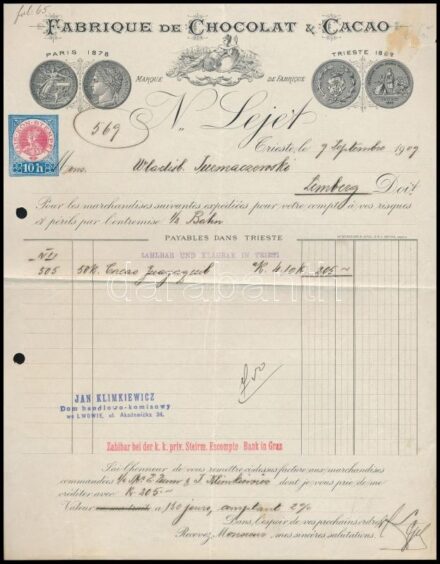 FABRIQUE DE CHOCOLAT & CACAO
PARIS 1878
TRIESTE 1882
MARQUE DE FABRIQUE
569
N. Lejet
Trieste le 7 Septembre 1907
10 h
Mons. Wladisl.
Lemberg Doit
Pour les marchandises suivantes expédiées pour votre compte à vos risques
et périls par l'entremise Bahn
PAYABLES DANS TRIESTE
ZAHLBAR UND KLAGBAR IN TRIEST
505 50 K. Cacao K. 4.10 K 205.~
darabanth
JAN KLIMKIEWICZ
Dom handlowo-komisowy
we LWOWIE, ul. Akademicka 24.
Zahlbar bei der k. k. priv. Steierm. Escompte-Bank in Graz
J'ai l'honneur de vous remettre ci-dessus facture aux marchandises
commandées dont je vous prie de me
créditer avec K 205.~
Valeur à 180 jours, comptant 2%
Dans l'espoir de vos prochains ordres
Recevez Monsieur, mes sincères salutations.